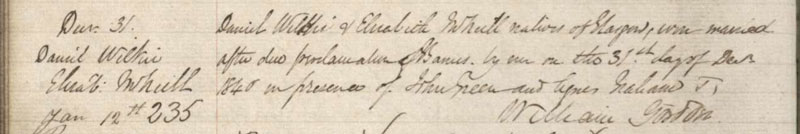 Decr 31. Daniel Wilkie & Elizabeth McNeill natives of Glasgow, were married
Daniel Wilkie after due proclamation of Banns. by me on the 31st. day of Decr
Elizath: McNeill 1840 in presence of John Green and Agnes Graham
Jan 12th 235 William Gordon.